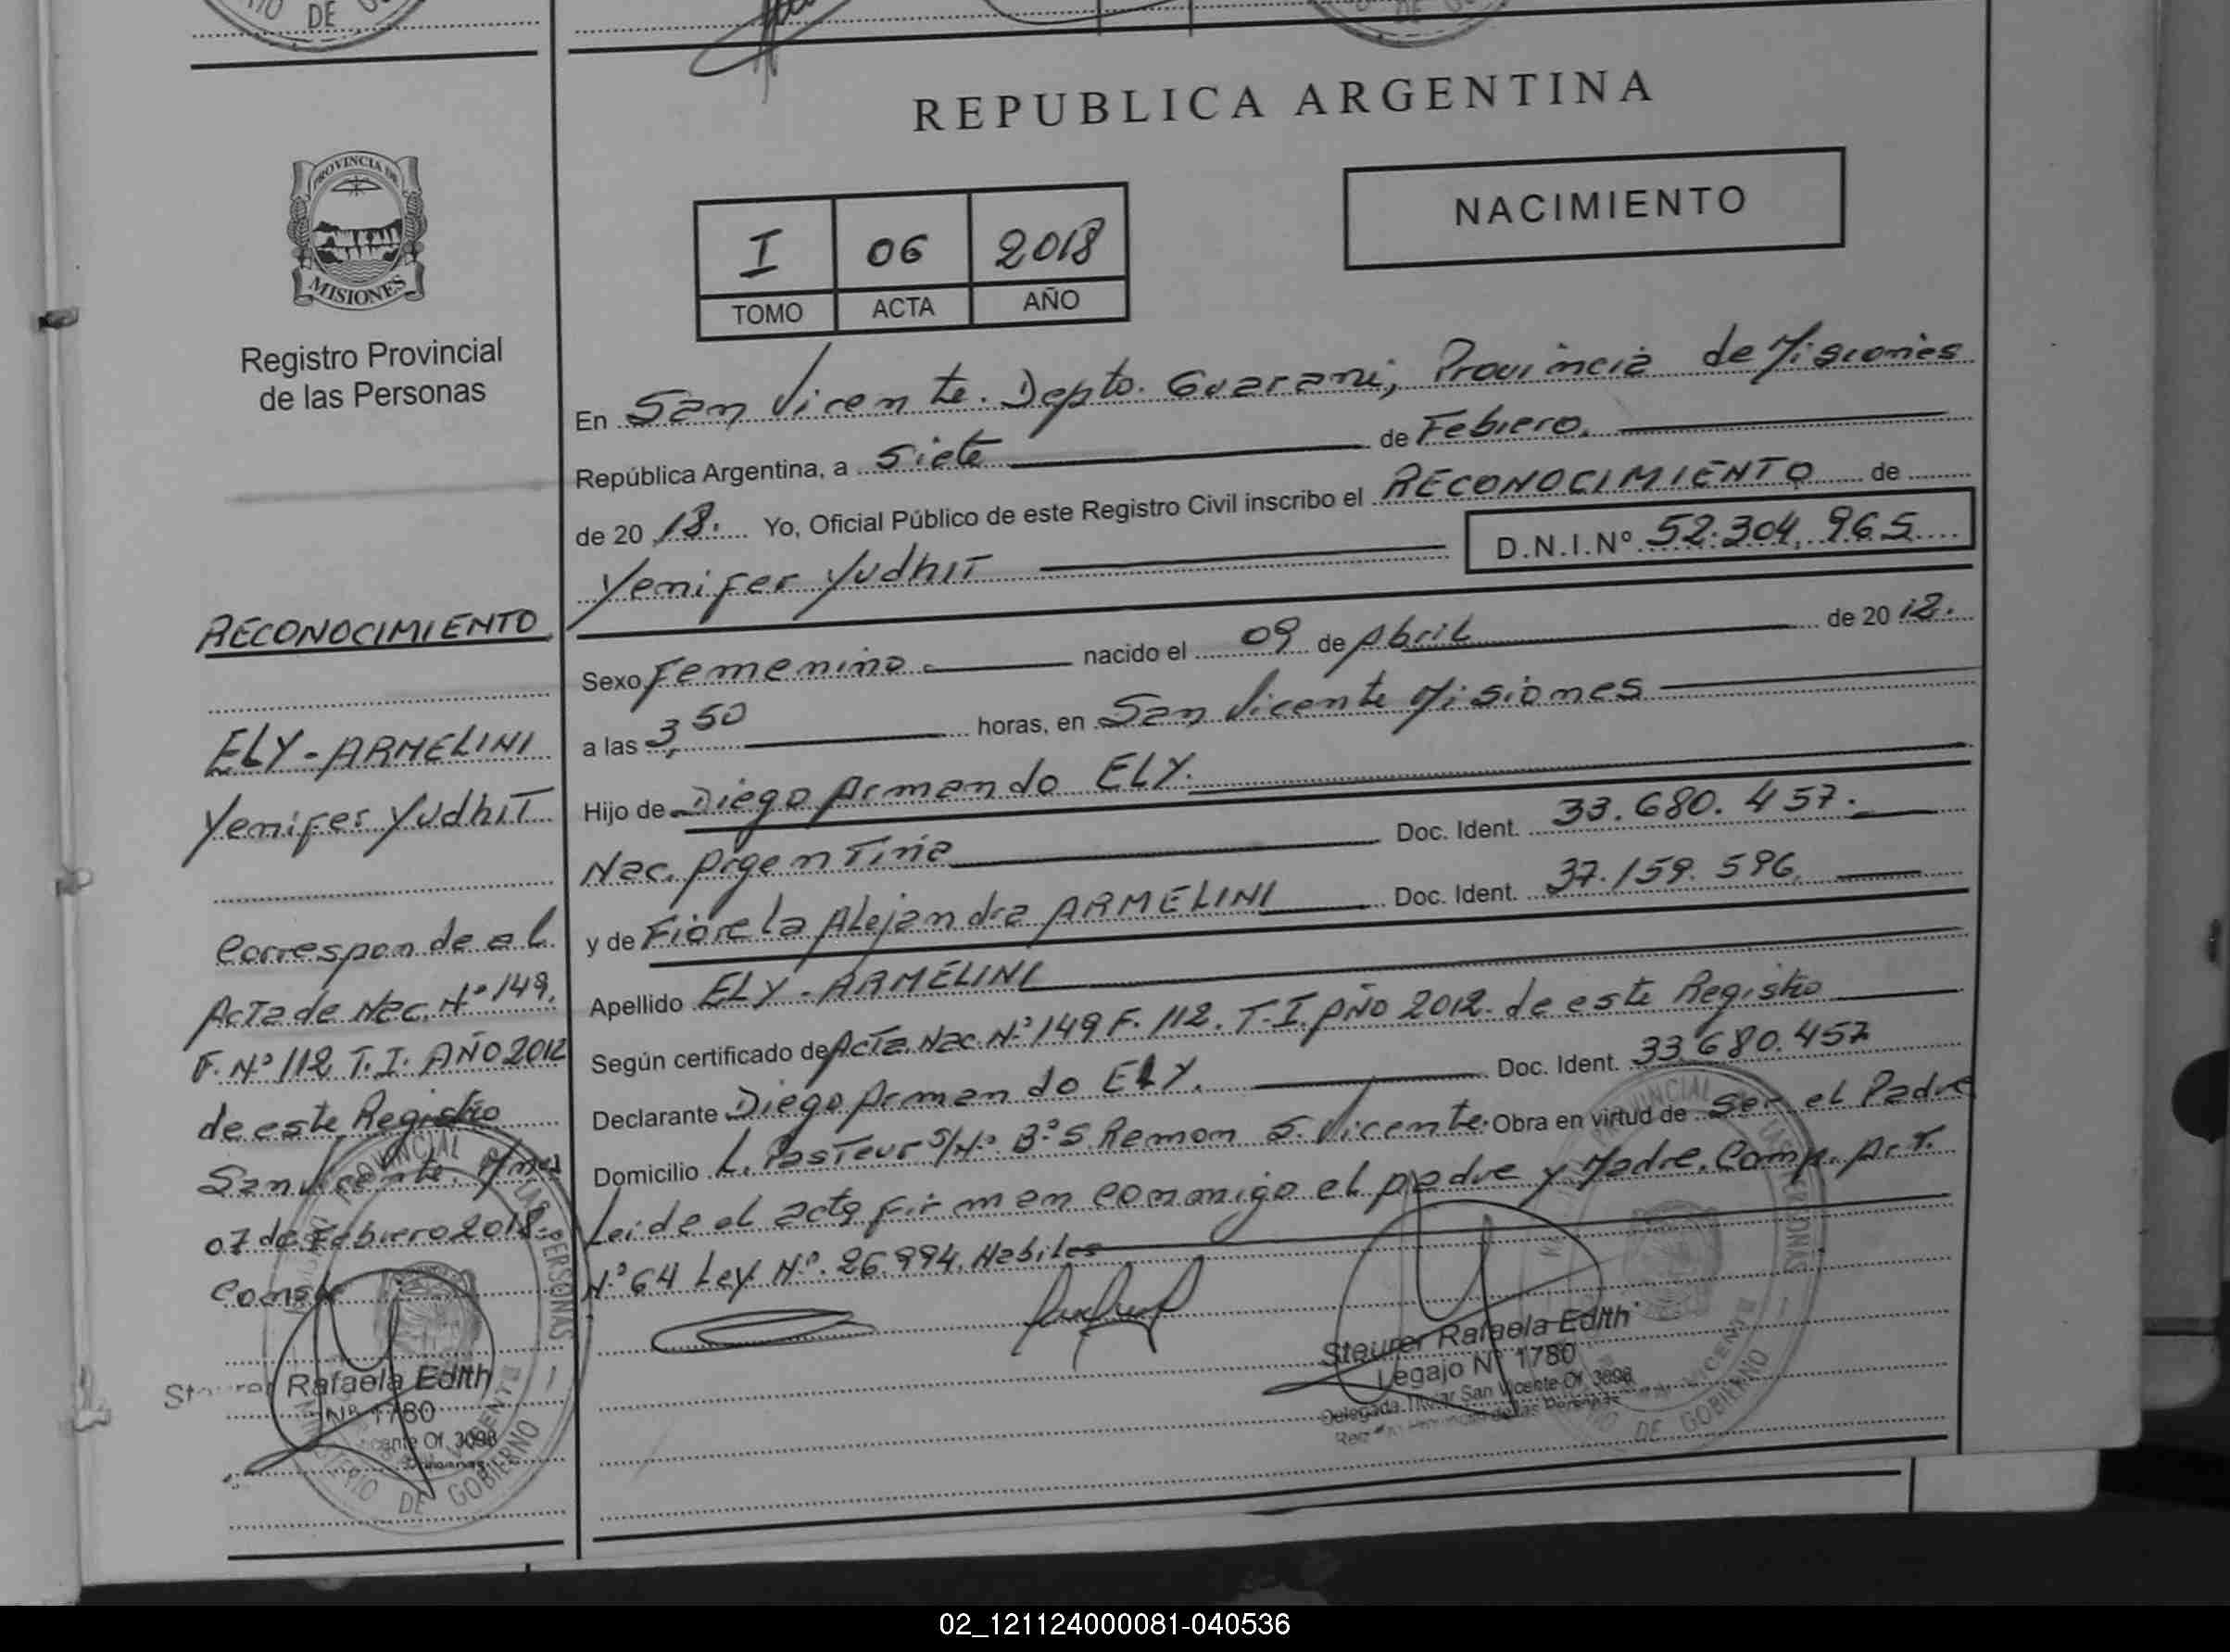 DE
REPUBLICA ARGENTINA
PROVINCIA DE
MISIONES
Registro Provincial
de las Personas
I 06 2018
TOMO ACTA AÑO
NACIMIENTO
En San Vicente. Depto. Guarani, Provincia de Misiones
República Argentina, a Siete de Febrero.
de 20 18. Yo, Oficial Público de este Registro Civil inscribo el RECONOCIMIENTO de
Yenifer Yudhit D.N.I.Nº 52.304.965
Sexo Femenino nacido el 09 de Abril de 2012.
a las 3,50 horas, en San Vicente Misiones
Hijo de Diego Armando ELY.
Nac. Argentina Doc. Ident. 33.680.457.
y de Fiorela Alejandra ARMELINI Doc. Ident. 37.159.596.
Apellido ELY-ARMELINI
Según certificado de Acta. Nac. Nº 149 F. 112. T-I. AÑO 2012. de este Registro
Declarante Diego Armando ELY. Doc. Ident. 33.680.457
Domicilio L. Pasteur S/Nº Bº S. Ramon S. Vicente. Obra en virtud de Ser el Padre
Leida el acta firman conmigo el padre y Madre. Comp. Art.
Nº 64 Ley. Nº. 26.994. Habiles
Steurer Rafaela Edith
Legajo Nº 1780
Delegada Titular San Vicente Of. 3098
PROVINCIAL DE LAS PERSONAS
SAN VICENTE
MINISTERIO DE GOBIERNO
RECONOCIMIENTO
ELY-ARMELINI
Yenifer Yudhit
Corresponde al
Acta de Nac. Nº 149.
F. Nº 112 T.I. AÑO 2012
de este Registro
San Vicente. Mnes
07 de Febrero 2018.
Conste
Steurer Rafaela Edith
Nº 1780
Vicente Of. 3098
PROVINCIAL DE LAS PERSONAS
MINISTERIO DE GOBIERNO
02_121124000081-040536